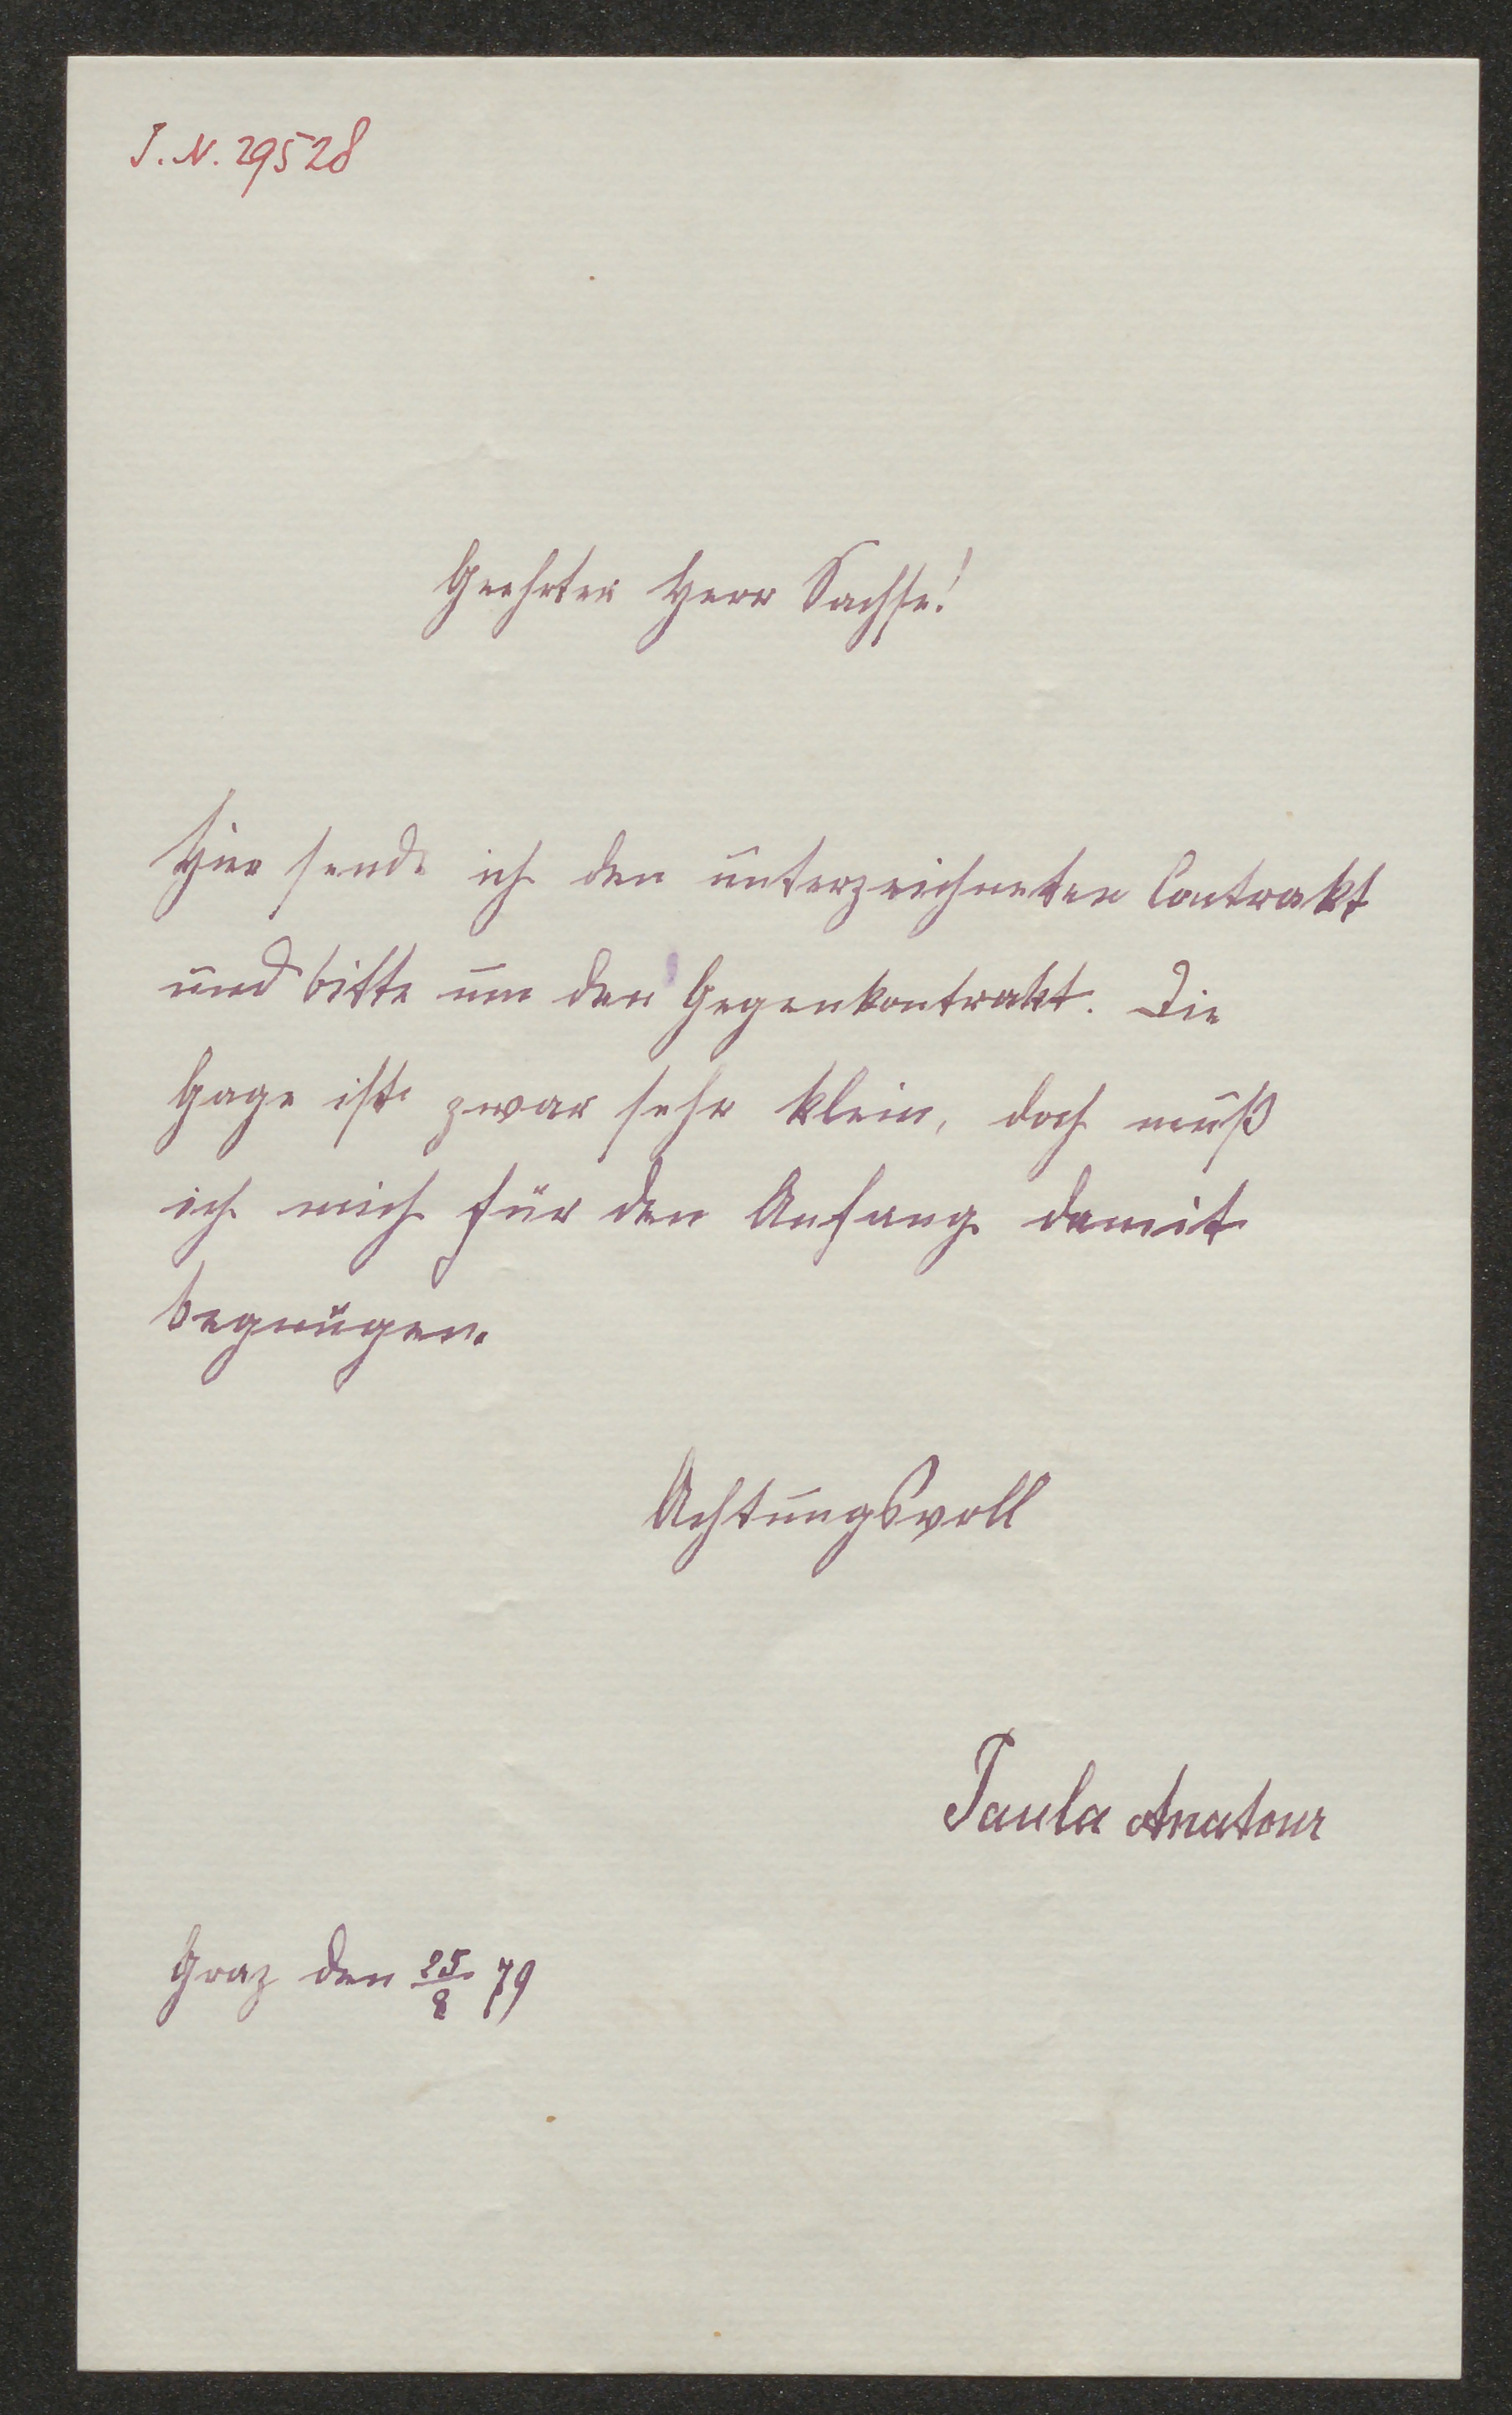 I. N. 29528
Geehrter Herr Sachse!
Hier sende ich den unterzeichneten Contrakt
und bitte um den Gegenkontrakt. Die
Gage ist zwar sehr klein, doch muß
ich mich für den Anfang damit
begnügen.
Achtungsvoll
Paula Anatour
Graz den 25/8 79